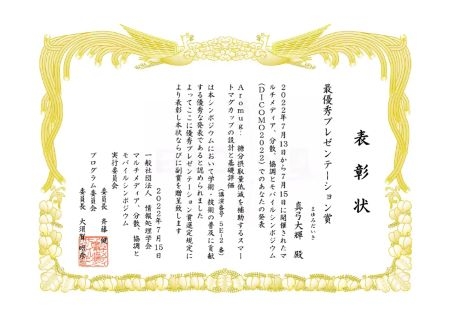 表彰状
最優秀プレゼンテーション賞
まゆみだいき
真弓大輝 殿
2022年7月13日から7月15日に開催されたマ
ルチメディア、分散、協調とモバイルシンポジウム
(DICOMO2022)でのあなたの発表
Aromug: 糖分摂取量低減を補助するスマー
トマグカップの設計と基礎評価
(講演番号:5E-2番)
は本シンポジウムにおいて学術・技術の普及に貢献
する優秀な発表であると認められました
よってここに優秀プレゼンテーション賞選定規定に
より表彰し本状ならびに副賞を贈呈致します
2022年7月15日
一般社団法人 情報処理学会
マルチメディア、分散、協調と
モバイルシンポジウム
実行委員会
委員長 斉藤 健
プログラム委員会
委員長 大須賀 彦